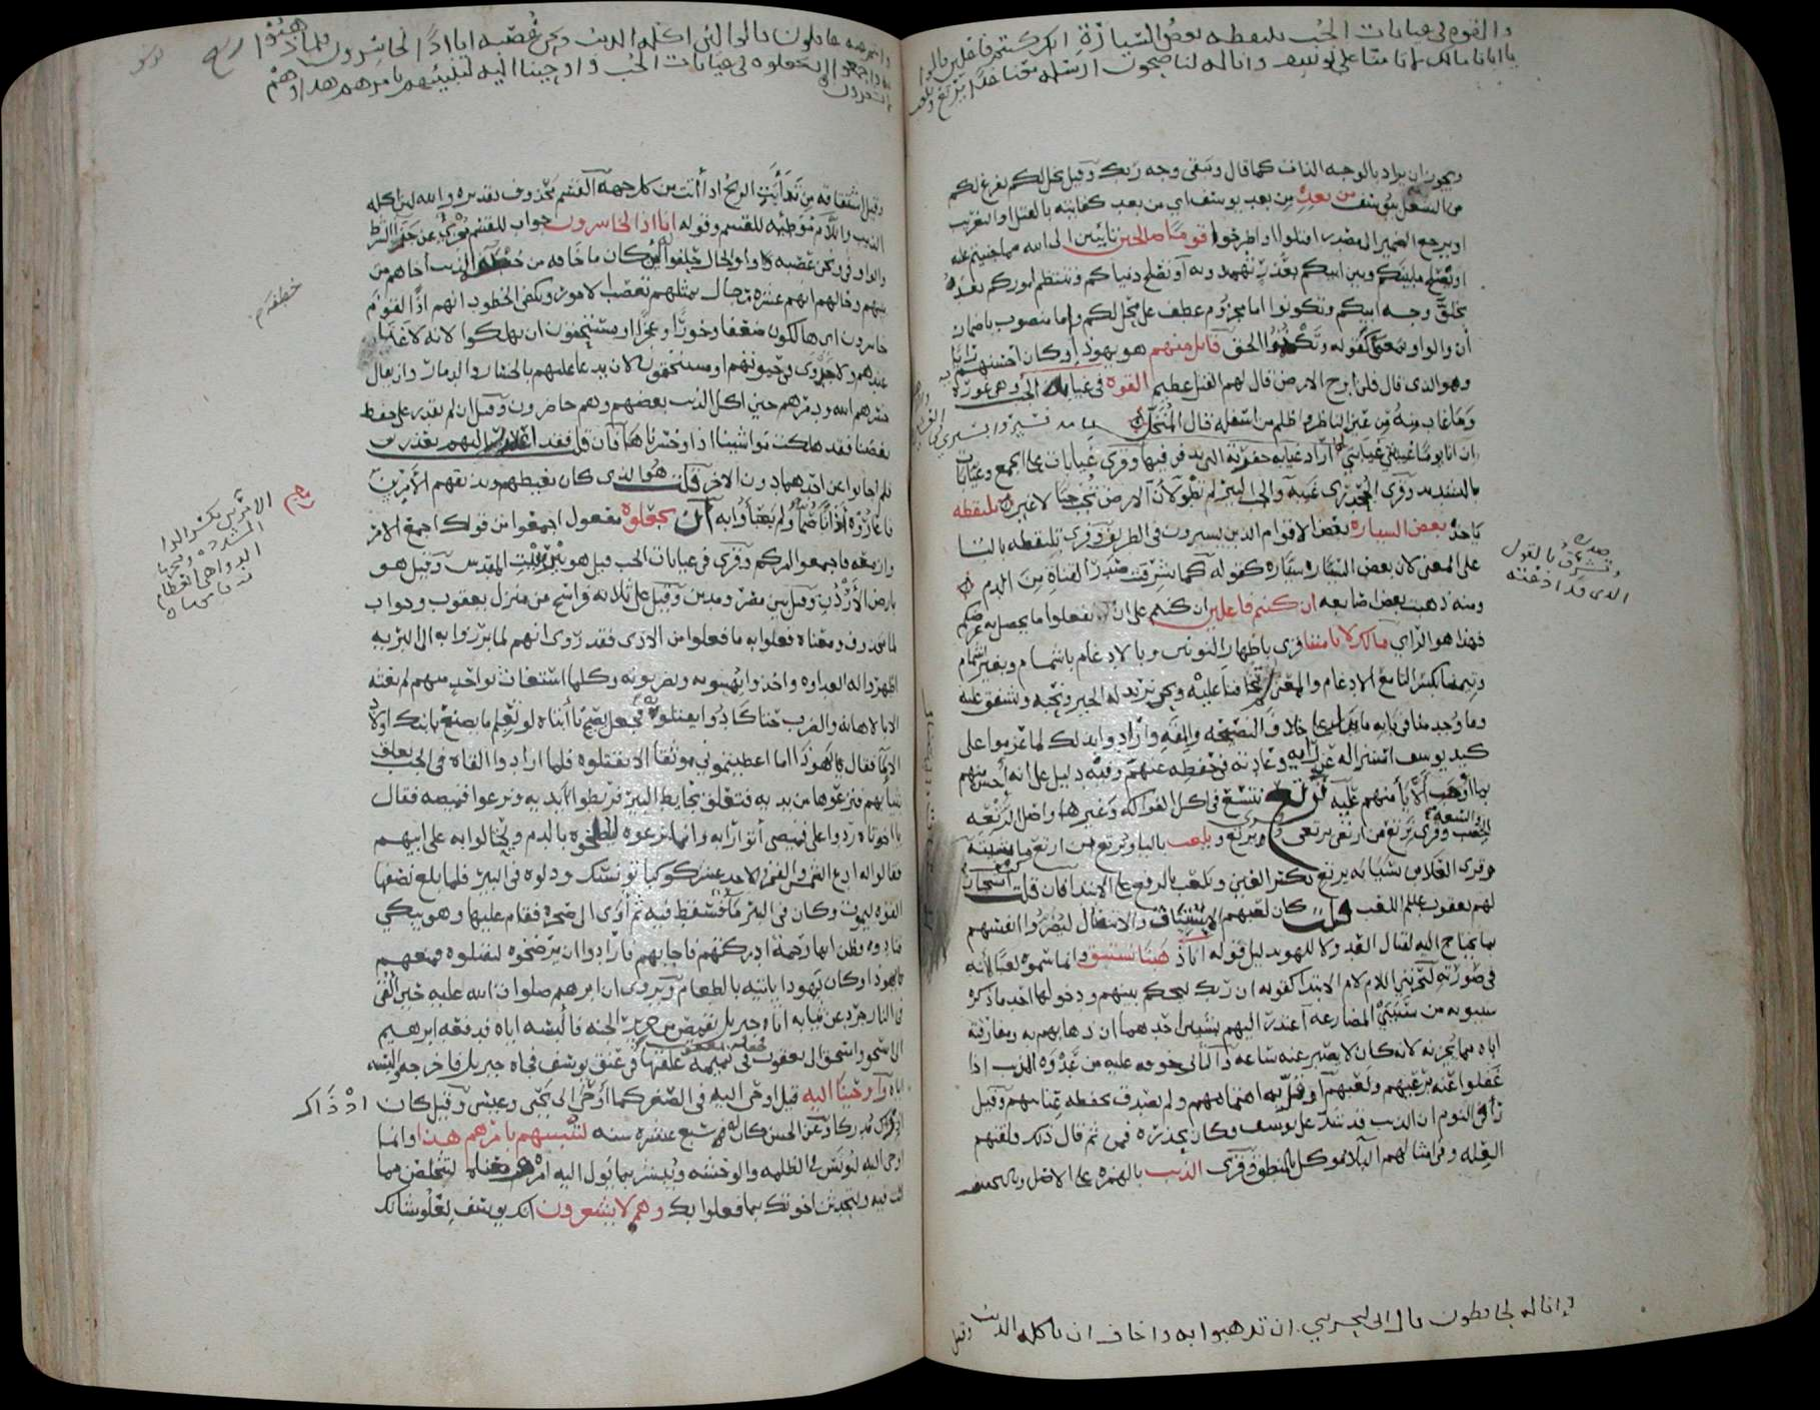 والقوه في غيابات الجب يلتقطه بعض السيارة ان كنتم فاعلين قالوا
يا ابانا مالك لا تامنا على يوسف وانا له لناصحون ارسله معنا غدا يرتع ويلعب
ويجوز ان يراد بالوجه الذات كما قال ويبقى وجه ربك وقيل يخل لكم يفرغ لكم
من الشغل بيوسف من بعده من بعد يوسف اي من بعد كفايته بالقتل او التغريب
او يرجع الضمير الى مصدر اقتلوا او اطرحوا قوما صالحين تائبين الى الله مما جنيتم عليه
او يصلح ما بينكم وبين ابيكم بعذر تمهدونه او تصلح دنياكم وتنتظم اموركم بعده
بخلو وجه ابيكم وتكونوا اما مجزوم عطف على يخل لكم واما منصوب باضمار
أن والواو بمعنى مع كقوله وتكتموا الحق قائل منهم هو يهوذا وكان احسنهم رايا
وهو الذي قال فلن ابرح الارض قال لهم القتل عظيم القوه في غيابة الجب وهي غوره
وما غاب منه عن عين الناظر واظلم من اسفله قال المنخل
ان انا يوما غيبتني غيابتي فسيروا بسيري في العشيرة والاهل
اراد غيابة حفرته التي يدفن فيها وقرئ غيابات على الجمع وغيابات
بالتشديد وقرأ الجحدري غيبة والجب البئر لم تطو لان الارض تجب جبا لا غير يلتقطه
ياخذه بعض السيارة بعض الاقوام الذين يسيرون في الطريق وقرئ تلتقطه بالتا
على المعنى لان بعض السيارة سيارة كقوله كما شرقت صدر القناة من الدم
ومنه ذهبت بعض اصابعه ان كنتم فاعلين ان كنتم على ان تفعلوا ما يحصل به غرضكم
فهذا هو الراي مالك لا تامنا قرئ باظهار النونين وبالادغام باشمام وبغير اشمام
وتيمنا بكسر التا مع الادغام والمعنى لم تخافنا عليه ونحن نريد له الخير ونحبه ونشفق عليه
وما وجد منا في بابه ما يدل على خلاف النصيحه والمقه وارادوا بذلك لما عزموا على
كيد يوسف استنزاله عن رايه وعادته في حفظه منهم وفيه دليل على انه احس منهم
بما اوجب ألا يأمنهم عليه نرتع نتسع في اكل الفواكه وغيرها واصل الرتعة
الخصب والسعة وقرئ نرتع من ارتعى يرتعي وقرئ يرتع ويلعب باليا ويرتع من ارتع ماشيته
وقرأ العلاء بن سيابة يرتع بكسر العين ويلعب بالرفع على الابتدا فان قلت كيف استجاز
لهم يعقوب عليه السلم اللعب قلت كان لعبهم الاستباق والانتضال ليضروا انفسهم
بما يحتاج اليه لقتال العدو لا للهو بدليل قوله انا ذهبنا نستبق وانما سموه لعبا لانه
في صورته ليحزنني اللام لام الابتدا كقوله ان ربك ليحكم بينهم ودخولها احد ما ذكره
سيبويه من سببي المضارعه اعتذر اليهم بشيئين احدهما ان ذهابهم به ومفارقته
اياه مما يحزنه لانه كان لا يصبر عنه ساعه والثاني خوفه عليه من عدوة الذئب اذا
غفلوا عنه برعيهم ولعبهم او قل به اهتمامهم ولم تصدق بحفظه عنايتهم وقيل
رأى في النوم ان الذئب قد شد على يوسف وكان يحذره فمن ثم قال ذلك فلقنهم
العله وفي امثالهم البلاء موكل بالمنطق وقرئ الذئب بالهمزة على الاصل وبالتخفيف
وانا له لحافظون قال اني ليحزنني ان تذهبوا به واخاف ان ياكله الذئب
صدره
وتشرق بالقول
الذي قد اذعته
وانتم عنه غافلون قالوا لئن اكله الذئب ونحن عصبه انا اذا لخاسرون فلما ذهبوا
به واجمعوا ان يجعلوه في غيابات الجب واوحينا اليه لتنبئنهم بامرهم هذا وهم
لا يشعرون
وقيل اشتقاقه من تذاءبت الريح اذا أتت من كل جهة القسم محذوف تقديره والله لئن اكله
الذئب واللام موطئة للقسم وقوله انا اذا لخاسرون جواب للقسم مجزئ عن جزاء الشرط
والواو في ونحن عصبه واو الحال حلفوا لئن كان ما خافه من خطفة الذئب اخاهم من
بينهم وحالهم انهم عشرة رجال بمثلهم تعصب الامور وتكفى الخطوب انهم اذا لقوم
خاسرون اي هالكون ضعفا وخورا وعجزا او مستحقون ان يهلكوا لانه لا غنا
عندهم ولا جدوى في حيوتهم او مستحقون لان يدعا عليهم بالخسار والدمار وان يقال
خسرهم الله ودمرهم حين اكل الذئب بعضهم وهم حاضرون وقيل ان لم نقدر على حفظ
بعضنا فقد هلكت مواشينا اذا وخسرناها فان قلت فقد اعتذر اليهم بعذرين
فلم اجابوا عن احدهما دون الاخر قلت هو الذي كان يغيظهم ويذيقهم الأمرين
فاعاروه اذانا صما ولم يعبأوا به أن يجعلوه مفعول اجمعوا من قولك اجمع الامر
وازمعه فاجمعوا امركم وقرئ في غيابات الجب قيل هو بئر بيت المقدس وقيل هو
بارض الأردن وقيل بين مصر ومدين وقيل على ثلاثة فراسخ من منزل يعقوب وجواب
لما محذوف ومعناه فعلوا به ما فعلوا من الاذى فقد روى انهم لما برزوا به الى البريه
اظهروا له العداوه واخذوا يهينونه ويضربونه وكلما استغاث بواحد منهم لم يغثه
الا بالاهانة والضرب حتى كادوا يقتلونه فجعل يصيح يا أبتاه لو تعلم ما يصنع بابنك اولاد
الإماء فقال يهوذا اما اعطيتموني موثقا الا تقتلوه فلما ارادوا القاه في الجب تعلق
بثيابهم فنزعوها من يديه فتعلق بحايط البئر فربطوا يديه ونزعوا قميصه فقال
يا اخوتاه ردوا علي قميصي أتوارى به وانما نزعوه ليلطخوه بالدم ويحتالوا به على ابيهم
فقالوا له ادع الشمس والقمر والاحد عشر كوكبا تونسك ودلوه في البئر فلما بلغ نصفها
القوه ليموت وكان في البئر ماء فسقط فيه ثم أوى الى صخرة فقام عليها وهو يبكي
فنادوه وظن انها رحمة ادركتهم فاجابهم فارادوا ان يرضخوه ليقتلوه فمنعهم
يهوذا وكان يهوذا ياتيه بالطعام ويروى ان ابرهيم صلوات الله عليه حين القي
في النار جرد عن ثيابه اتاه جبريل بقميص من حرير الجنه فألبسه اياه فدفعه ابرهيم
الى اسحق واسحق الى يعقوب فجعله يعقوب في تميمة علقها في عنق يوسف فجاه جبريل فاخرجه والبسه
اياه وأوحينا اليه قيل اوحى اليه في الصغر كما أوحي الى يحيى وعيسى وقيل كان اذ ذاك
مدركا وعن الحسن كان له سبع عشرة سنه لتنبئنهم بامرهم هذا وانما
اوحى اليه ليونس في الظلمة والوحشة ويبشر بما يؤل اليه امره ومعناه لتتخلصن مما
انت فيه ولتحدثن اخوتك بما فعلوا بك وهم لا يشعرون انك يوسف لعلو شانك
خطفتهم
الامرين بكسر الرا